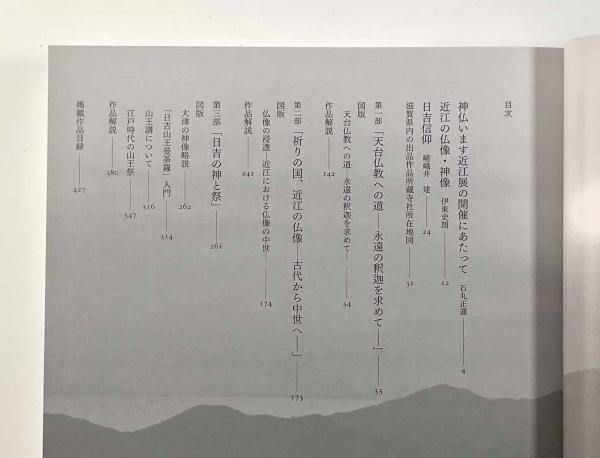 目次
神仏います近江展の開催にあたって 石丸正運——4
近江の仏像・神像 伊東史朗——12
日吉信仰 嵯峨井 建——24
滋賀県内の出品作品所蔵寺社所在地図——31
第一部「天台仏教への道——永遠の釈迦を求めて——」——33
図版
天台仏教への道—永遠の釈迦を求めて——34
作品解説——142
第二部「祈りの国、近江の仏像——古代から中世へ——」——173
図版
仏像の浸透—近江における仏像の中世——174
作品解説——242
第三部「日吉の神と祭」——261
図版
大津の神像略説——262
「日吉山王曼荼羅」入門——314
山王講について——316
江戸時代の山王祭——347
作品解説——380
掲載作品目録——427